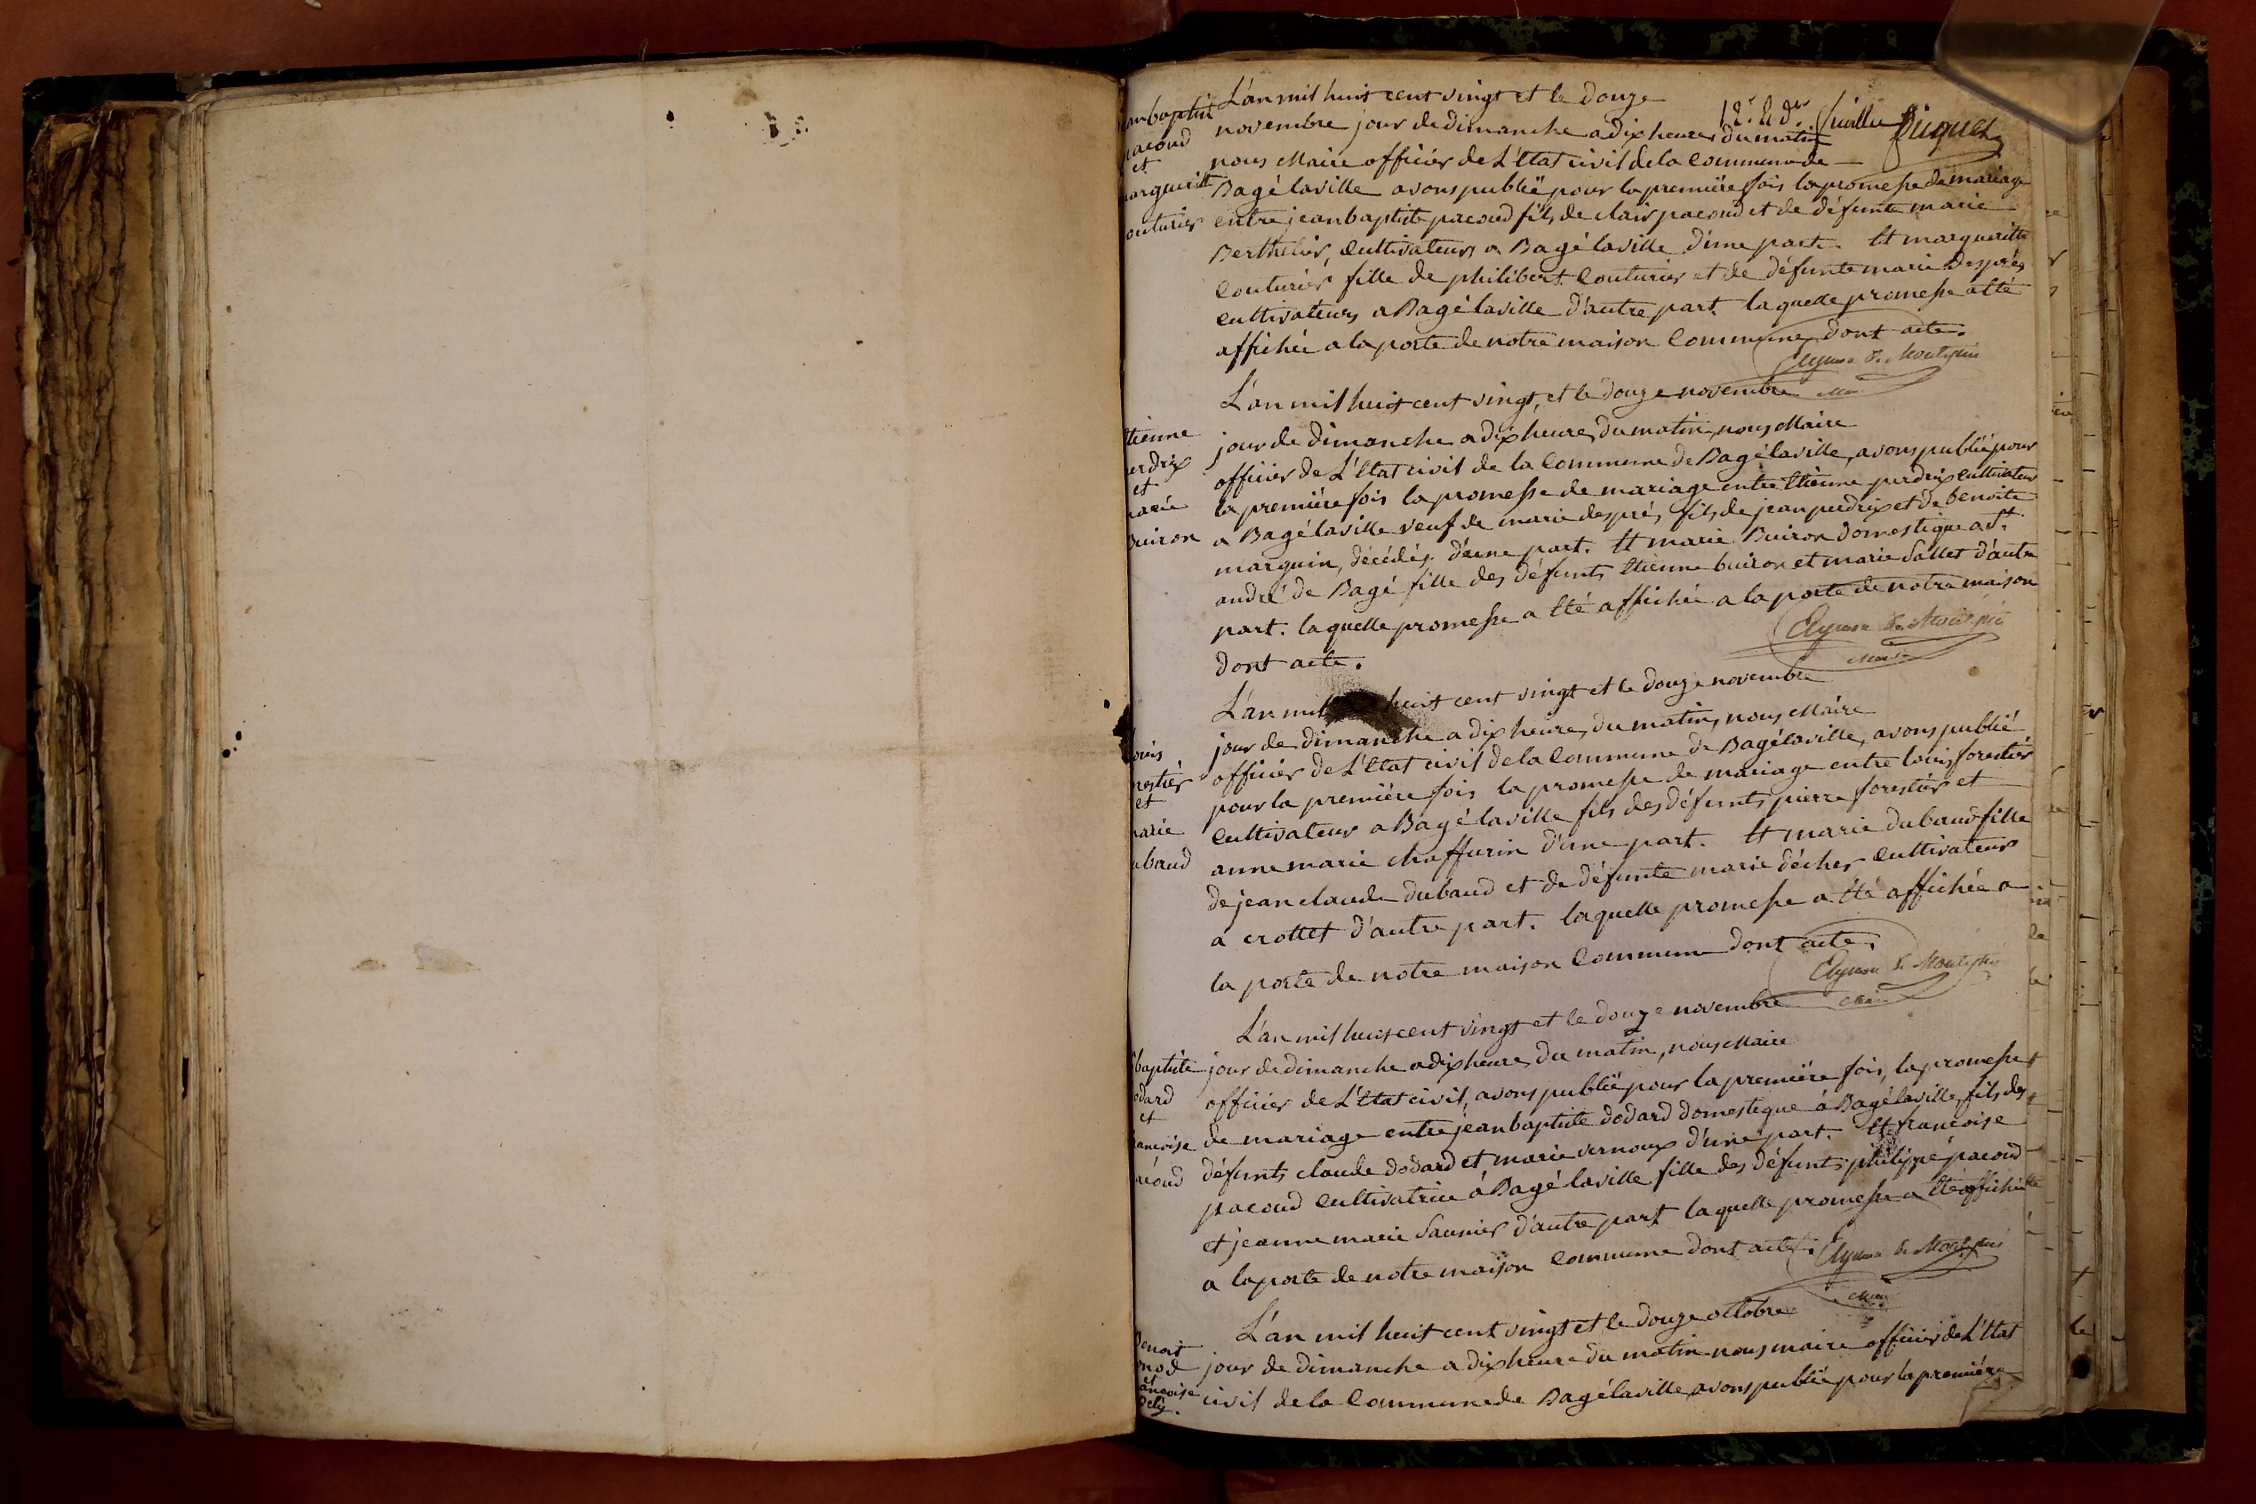 L'an mil huit cent vingt et le douze
novembre jour de dimanche a dix heures du matin
nous Maire officier de L'Etat civil de la Commune de
Bagé laville avons publié pour la premiére fois la promesse de mariage
entre jean baptiste pacoud fils de clair pacoud et de défunte marie
Berthelier, Cultivateurs a Bagé laville d'une part. Et margueritte
Couturier fille de philibert Couturier et de défunte marie Desprès
Cultivateurs a Bagé laville d'autre part. la quelle promesse a Eté
affichée a la porte de notre maison Commune dont acte.
anbaptist
pacoud
et
argueritt
outurier
L'an mil huit cent vingt, et le douze novembre
jour de dimanche a dix heures du matin, nous Maire
officier de L'Etat civil de la Commune de Bagé laville, avons publié pour
la premiére fois la promesse de mariage entre Etienne perdrix Cultivateur
a Bagé laville veuf de marie desprès, fils de jean perdrix et de benoite
marguin, décédés, d'une part. Et marie Buiron domestique a St.
andré de Bagé fille des défunts Etienne buiron et marie Sallet d'autre
part. la quelle promesse a Eté affichée a la porte de notre maison
dont acte.
tienne
erdrix
et
arie
Buiron
L'an mil huit cent vingt et le douze novembre
jour de dimanche a dix heures du matin, nous Maire
officier de L'Etat civil de la Commune de Bagé laville, avons publié
pour la premiére fois la promesse de mariage entre louis forestier
Cultivateur a Bagé laville fils des défunts pierre forestier et
anne marie chaffurin d'une part. Et marie dubaud fille
de jean claude dubaud et de défunte marie décher Cultivateur
a crottet d'autre part. laquelle promesse a Eté affichée a
la porte de notre maison Commune dont acte.
ouis
restier
et
arie
ubaud
L'an mil huit cent vingt et le douze novembre
jour de dimanche a dix heures du matin, nous Maire
officier de L'Etat civil, avons publié pour la premiére fois, la promesse
de mariage entre jean baptiste dodard domestique á Bagé laville, fils des
défunts claude dodard et marie vernoux d'une part. Et francoise
pacoud Cultivatrice á Bagé laville fille des défunts philippe pacoud
et jeanne marie Saunier d'autre part la quelle promesse a Eté affichée
a la porte de notre maison Commune dont acte.
baptiste
odard
et
ancoise
acoud
L'an mil huit cent vingt et le douze octobre
jour de dimanche a dix heure du matin nous maire officier de L'Etat
civil de la Commune de Bagé laville, avons publié pour la premiére
Benoit
et
ancoise